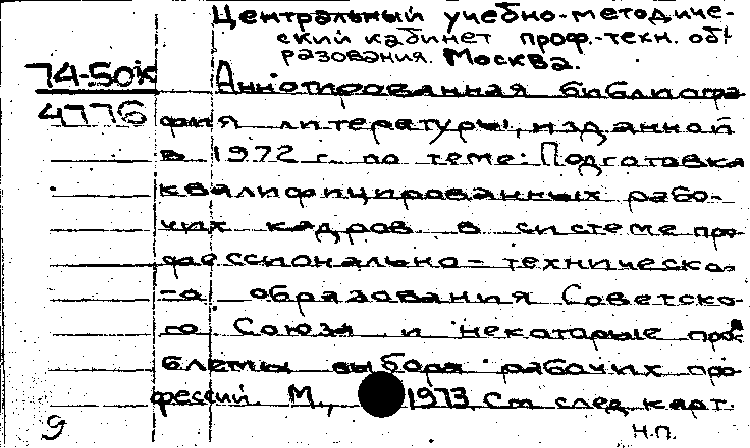 Центральный учебно-методиче-
ский кабинет проф.-техн. об-
разования. Москва.
74-50к
Аннотированная библиогра
4776
фия литературы, изданной
в 1972 г. по теме: Подготовка
квалифицированных рабо-
чих кадров в системе про-
фессионально-техническо-
го образования Советско-
го Союза и некоторые про-
блемы выбора рабочих про-
фессий. М., 1973 См след карт.
9
н.п.